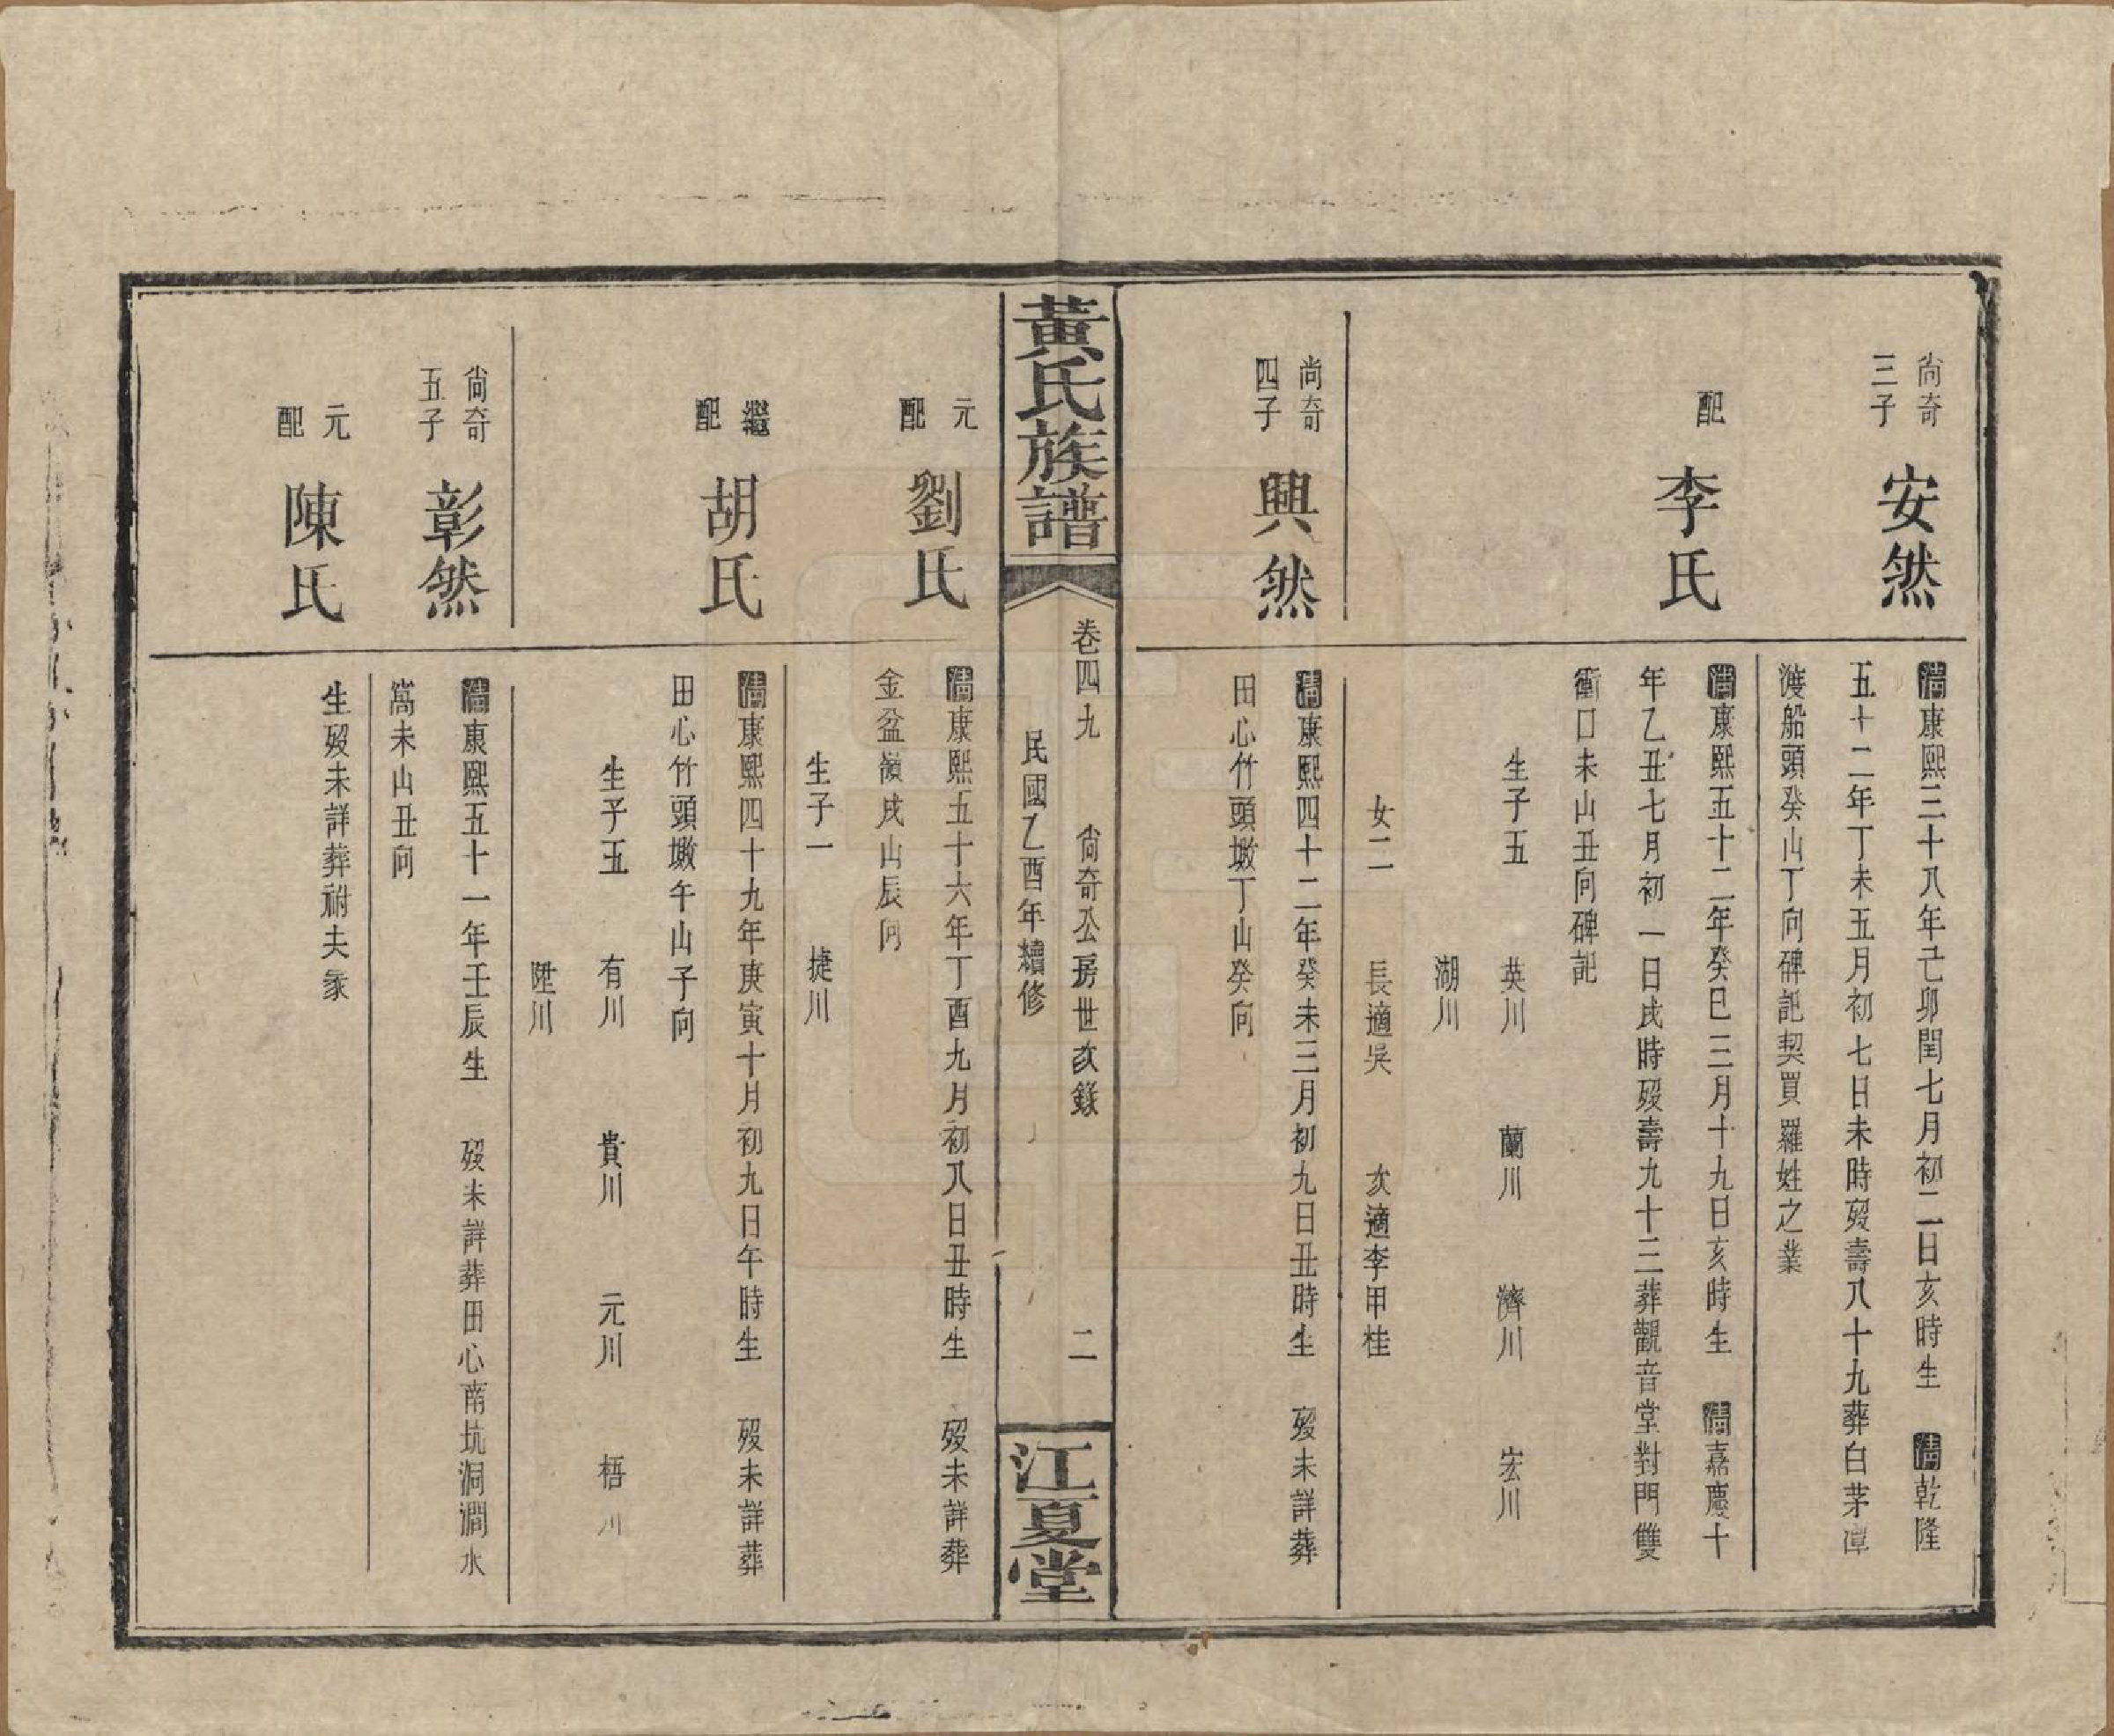 尚奇
三子
安然
清康熙三十八年己卯閏七月初二日亥時生 清乾隆
五十二年丁未五月初七日未時歿壽八十九葬白茅潭
渡船頭癸山丁向碑記契買羅姓之業
配
李氏
清康熙五十二年癸巳三月十九日亥時生 清嘉慶十
年乙丑七月初一日戌時歿壽九十三葬觀音堂對門雙
衝口未山丑向碑記
生子五 英川 蘭川 濟川 宏川
湖川
女二 長適吳 次適李甲桂
尚奇
四子
興然
清康熙四十二年癸未三月初九日丑時生 歿未詳葬
田心竹頭墩丁山癸向
黃氏族譜
卷四九 尚奇公房世次錄 二
民國乙酉年續修
江夏堂
元
配
劉氏
清康熙五十六年丁酉九月初八日丑時生 歿未詳葬
金盆嶺戌山辰向
生子一 捷川
繼
配
胡氏
清康熙四十九年庚寅十月初九日午時生 歿未詳葬
田心竹頭墩午山子向
生子五 有川 貴川 元川 梧川
陞川
尚奇
五子
彰然
清康熙五十一年壬辰生 歿未詳葬田心南坑洞澗水
嵩未山丑向
元
配
陳氏
生歿未詳葬祔夫冢